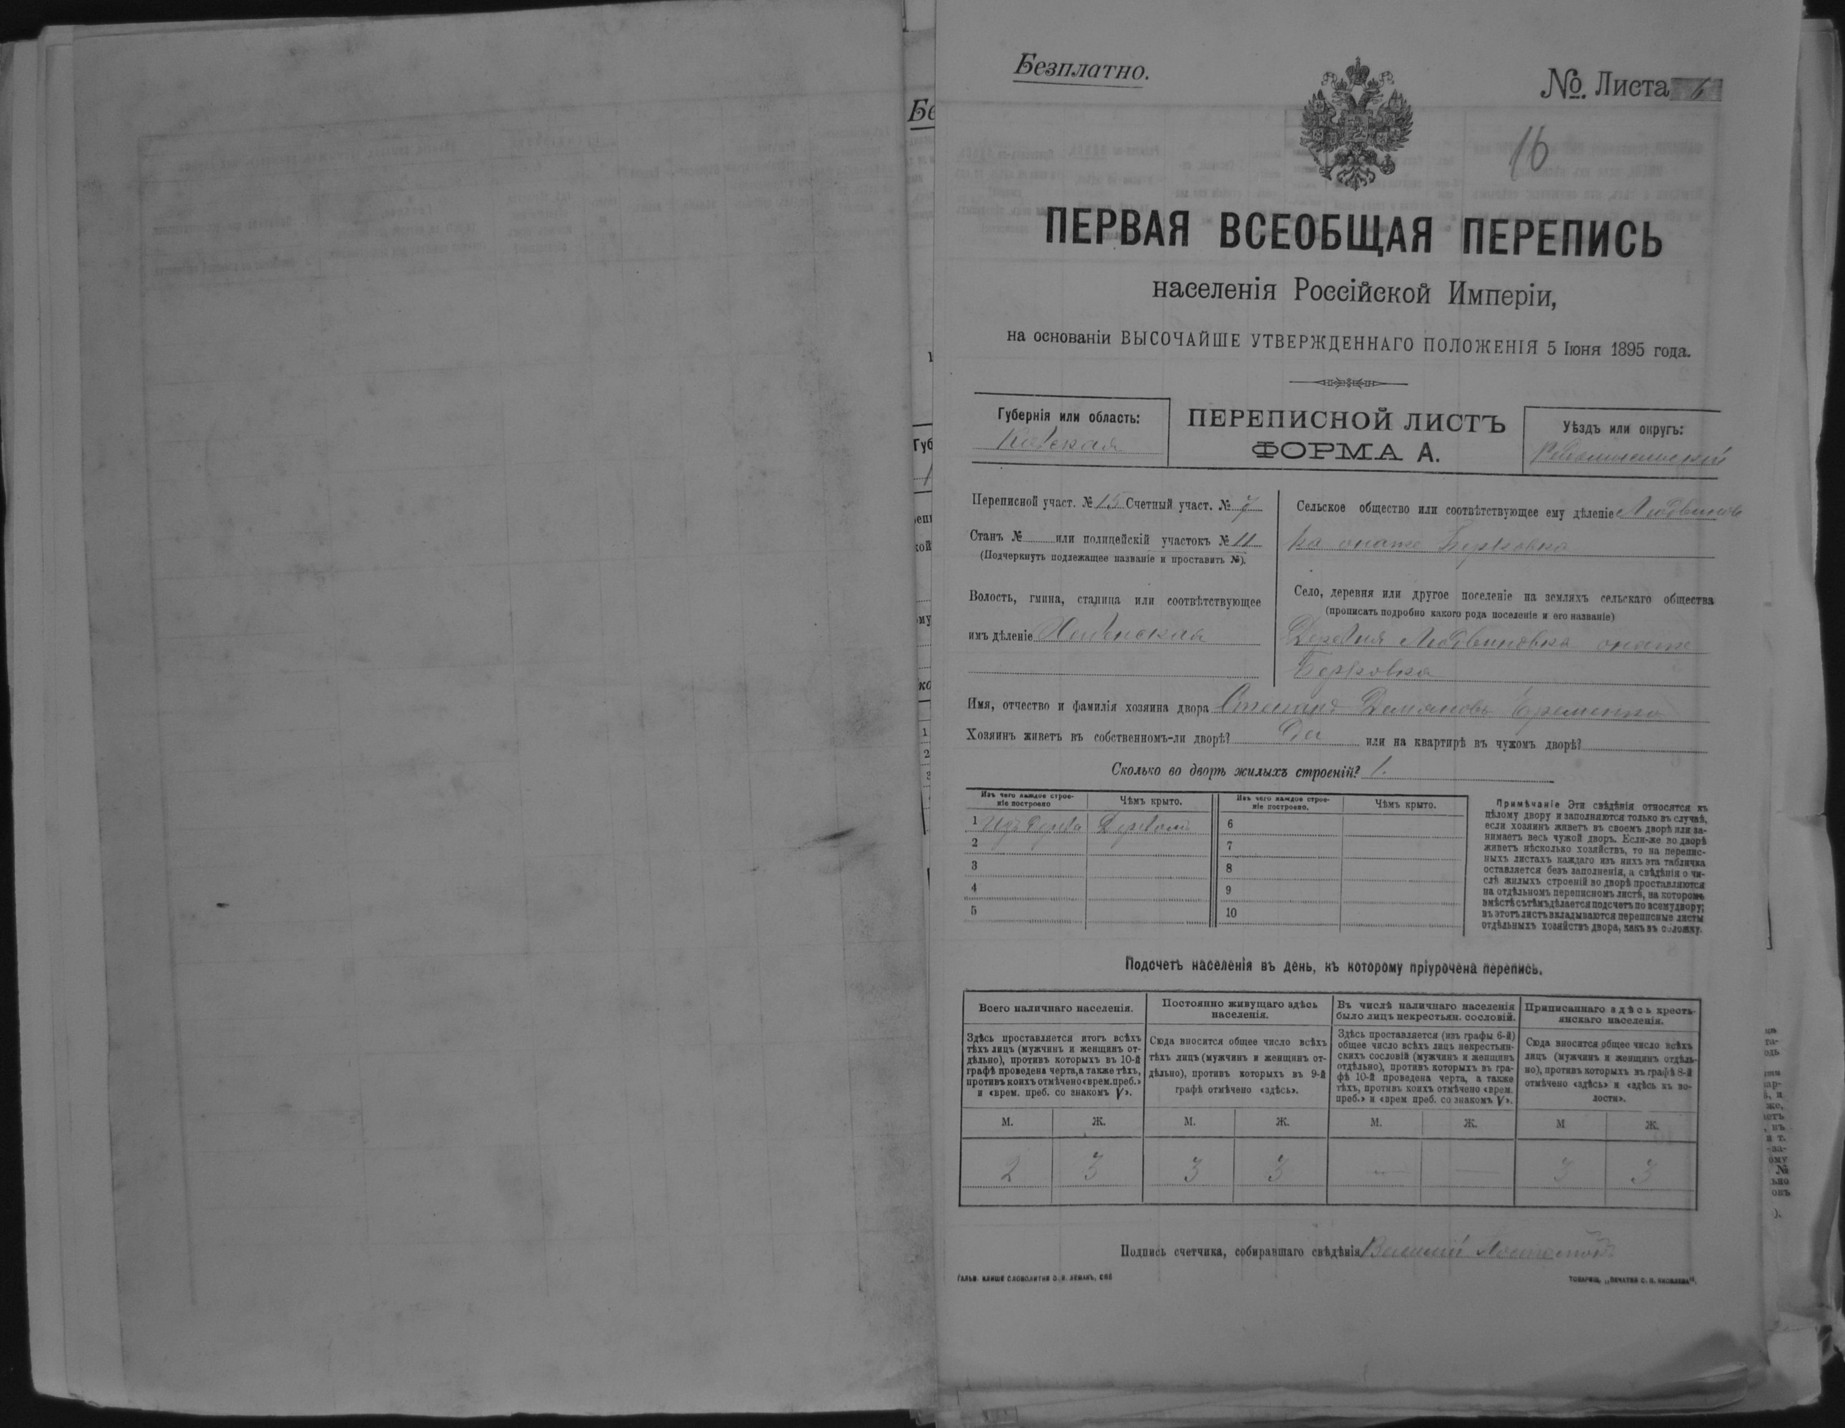 Безплатно.
№. Листа
16
ПЕРВАЯ ВСЕОБЩАЯ ПЕРЕПИСЬ
населенія Россійской Имперіи,
на основаніи ВЫСОЧАЙШЕ УТВЕРЖДЕННАГО ПОЛОЖЕНІЯ 5 Іюня 1895 года.
Губернія или область:
Кіевская
ПЕРЕПИСНОЙ ЛИСТЪ
ФОРМА А.
Уѣздъ или округъ:
Переписной участ. № 15 Счетный участ. № 7
Станъ № или полицейскій участокъ № 11
(Подчеркнуть подлежащее названіе и проставить №).
Волость, гмина, станица или соотвѣтствующее
имъ дѣленіе
Сельское общество или соотвѣтствующее ему дѣленіе
Село, деревня или другое поселеніе на земляхъ сельскаго общества
(прописать подробно какого рода поселеніе и его названіе)
Деревня
Имя, отчество и фамилія хозяина двора Степанъ Демяновъ Еременко
Хозяинъ живетъ въ собственномъ-ли дворѣ? Да или на квартирѣ въ чужомъ дворѣ?
Сколько во дворѣ жилыхъ строеній? 1.
Изъ чего каждое строе-
ніе построено
Чѣмъ крыто.
Изъ чего каждое строе-
ніе построено.
Чѣмъ крыто.
1 Изъ дерева
2
3
4
5
6
7
8
9
10
Примѣчаніе Эти свѣдѣнія относятся къ
цѣлому двору и заполняются только въ случаѣ,
если хозяинъ живетъ въ своемъ дворѣ или за-
нимаетъ весь чужой дворъ. Если-же во дворѣ
живетъ нѣсколько хозяйствъ, то на перепис-
ныхъ листахъ каждаго изъ нихъ эта табличка
оставляется безъ заполненія, а свѣдѣнія о чи-
слѣ жилыхъ строеній во дворѣ проставляются
на отдѣльномъ переписномъ листѣ, на которомъ
вмѣстѣ съ тѣмъ дѣлается подсчетъ по всему двору;
въ этотъ листъ вкладываются переписные листы
отдѣльныхъ хозяйствъ двора, какъ въ обложку.
Подсчетъ населенія въ день, къ которому пріурочена перепись.
Всего наличнаго населенія.
Постоянно живущаго здѣсь
населенія.
Въ числѣ наличнаго населенія
было лицъ некрестьян. сословій.
Приписаннаго здѣсь кресть-
янскаго населенія.
Здѣсь проставляется итогъ всѣхъ
тѣхъ лицъ (мужчинъ и женщинъ от-
дѣльно), противъ которыхъ въ 10-й
графѣ проведена черта, а также тѣхъ,
противъ коихъ отмѣчено «врем. преб.»
и «врем. преб. со знакомъ V».
Сюда вносится общее число всѣхъ
тѣхъ лицъ (мужчинъ и женщинъ от-
дѣльно), противъ которыхъ въ 9-й
графѣ отмѣчено «здѣсь».
Здѣсь проставляется (изъ графы 6-й)
общее число всѣхъ лицъ некрестьян-
скихъ сословій (мужчинъ и женщинъ
отдѣльно), противъ которыхъ въ гра-
фѣ 10-й проведена черта, а также
тѣхъ, противъ коихъ отмѣчено «врем.
преб.» и «врем преб. со знакомъ V».
Сюда вносится общее число всѣхъ
лицъ (мужчинъ и женщинъ отдѣль-
но), противъ которыхъ въ графѣ 8-й
отмѣчено «здѣсь» и «здѣсь къ во-
лости».
М. Ж. М. Ж. М. Ж. М Ж.
2 3 3 3 — — 3 3
Подпись счетчика, собиравшаго свѣдѣнія